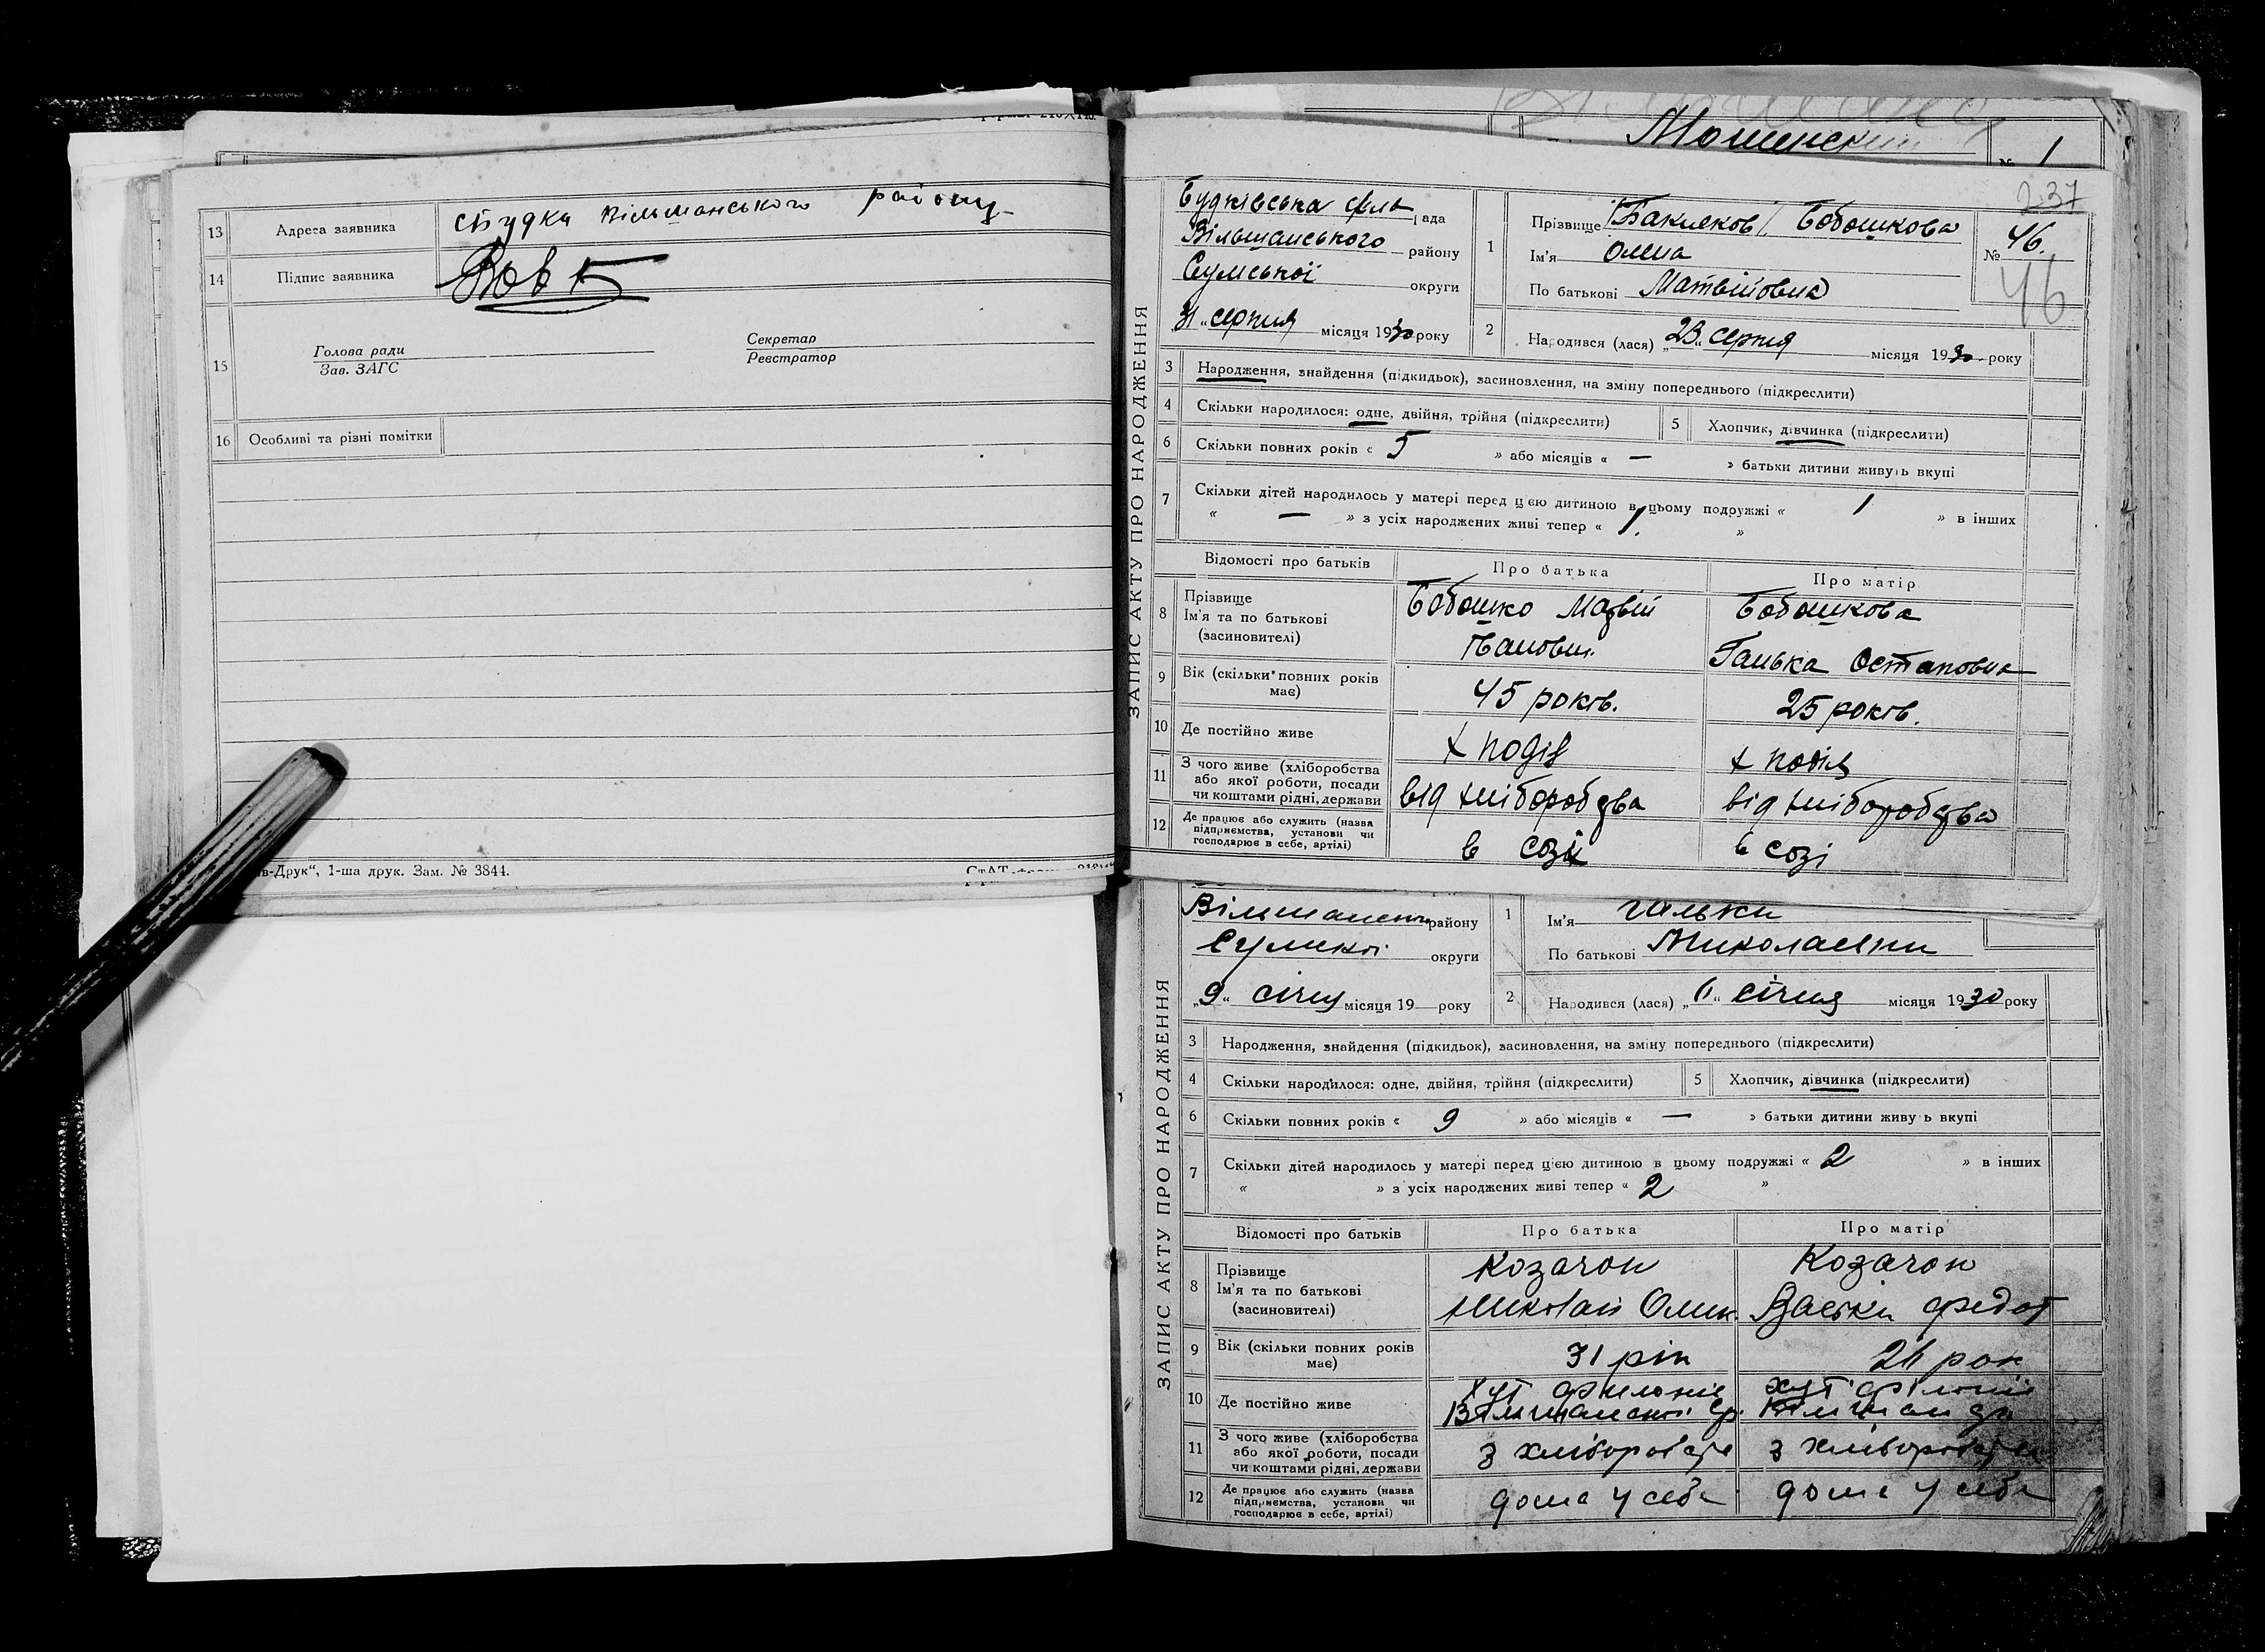 13 Адреса заявника
району
14 Підпис заявника Вовк
15 Голова ради
Зав. ЗАГС
Секретар
Реєстратор
16 Особливі та різні помітки
в-Друк“, 1-ша друк. Зам. № 3844.
Мошенский
№ 1
237
ЗАПИС АКТУ ПРО НАРОДЖЕННЯ
рада
Вільшанського району
Сумської округи
31 „серпня місяця 1930 року
1 Прізвище Бобошкова
Ім'я Олена
По батькові Матвійовна
№ 46.
46
2 Народився (лася) „23„ серпня місяця 1930 року
3 Народження, знайдення (підкидьок), засиновлення, на зміну попереднього (підкреслити)
4 Скільки народилося: одне, двійня, трійня (підкреслити)
5 Хлопчик, дівчинка (підкреслити)
6 Скільки повних років « 5 » або місяців « — » батьки дитини живуть вкупі
7 Скільки дітей народилось у матері перед цією дитиною в цьому подружжі « 1 » в інших
« — » з усіх народжених живі тепер « 1. »
Відомості про батьків Про батька Про матір
8 Прізвище
Ім'я та по батькові
(засиновителі)
Бобошко Матвій
Іванович
Бобошкова
Ганька Остаповна
9 Вік (скільки повних років
має)
45 років. 25 років.
10 Де постійно живе х Поділ х Поділ
11 З чого живе (хліборобства
або якої роботи, посади
чи коштами рідні, держави
від хліборобства від хліборобства
12 Де працює або служить (назва
підприємства, установи чи
господарює в себе, артілі)
в созі в созі
ЗАПИС АКТУ ПРО НАРОДЖЕННЯ
району
округи
„9„ січня місяця 19 року
1 Ім'я Гальки
По батькові Миколаевни
2 Народився (лася) січня місяця 1930 року
3 Народження, знайдення (підкидьок), засиновлення, на зміну попереднього (підкреслити)
4 Скільки народилося: одне, двійня, трійня (підкреслити)
5 Хлопчик, дівчинка (підкреслити)
6 Скільки повних років « 9 » або місяців « — » батьки дитини живу ь вкупі
7 Скільки дітей народилось у матері перед цією дитиною в цьому подружжі « 2 » в інших
« » з усіх народжених живі тепер « 2 »
Відомості про батьків Про батька Про матір
8 Прізвище
Ім'я та по батькові
(засиновителі)
Козачок
Николай
Козачок
Федот
9 Вік (скільки повних років
має)
31 рік
10 Де постійно живе
хут
хут
11 З чого живе (хліборобства
або якої роботи, посади
чи коштами рідні, держави
12 Де працює або служить (назва
підприємства, установи чи
господарює в себе, артілі)
дома у себе дома у себе